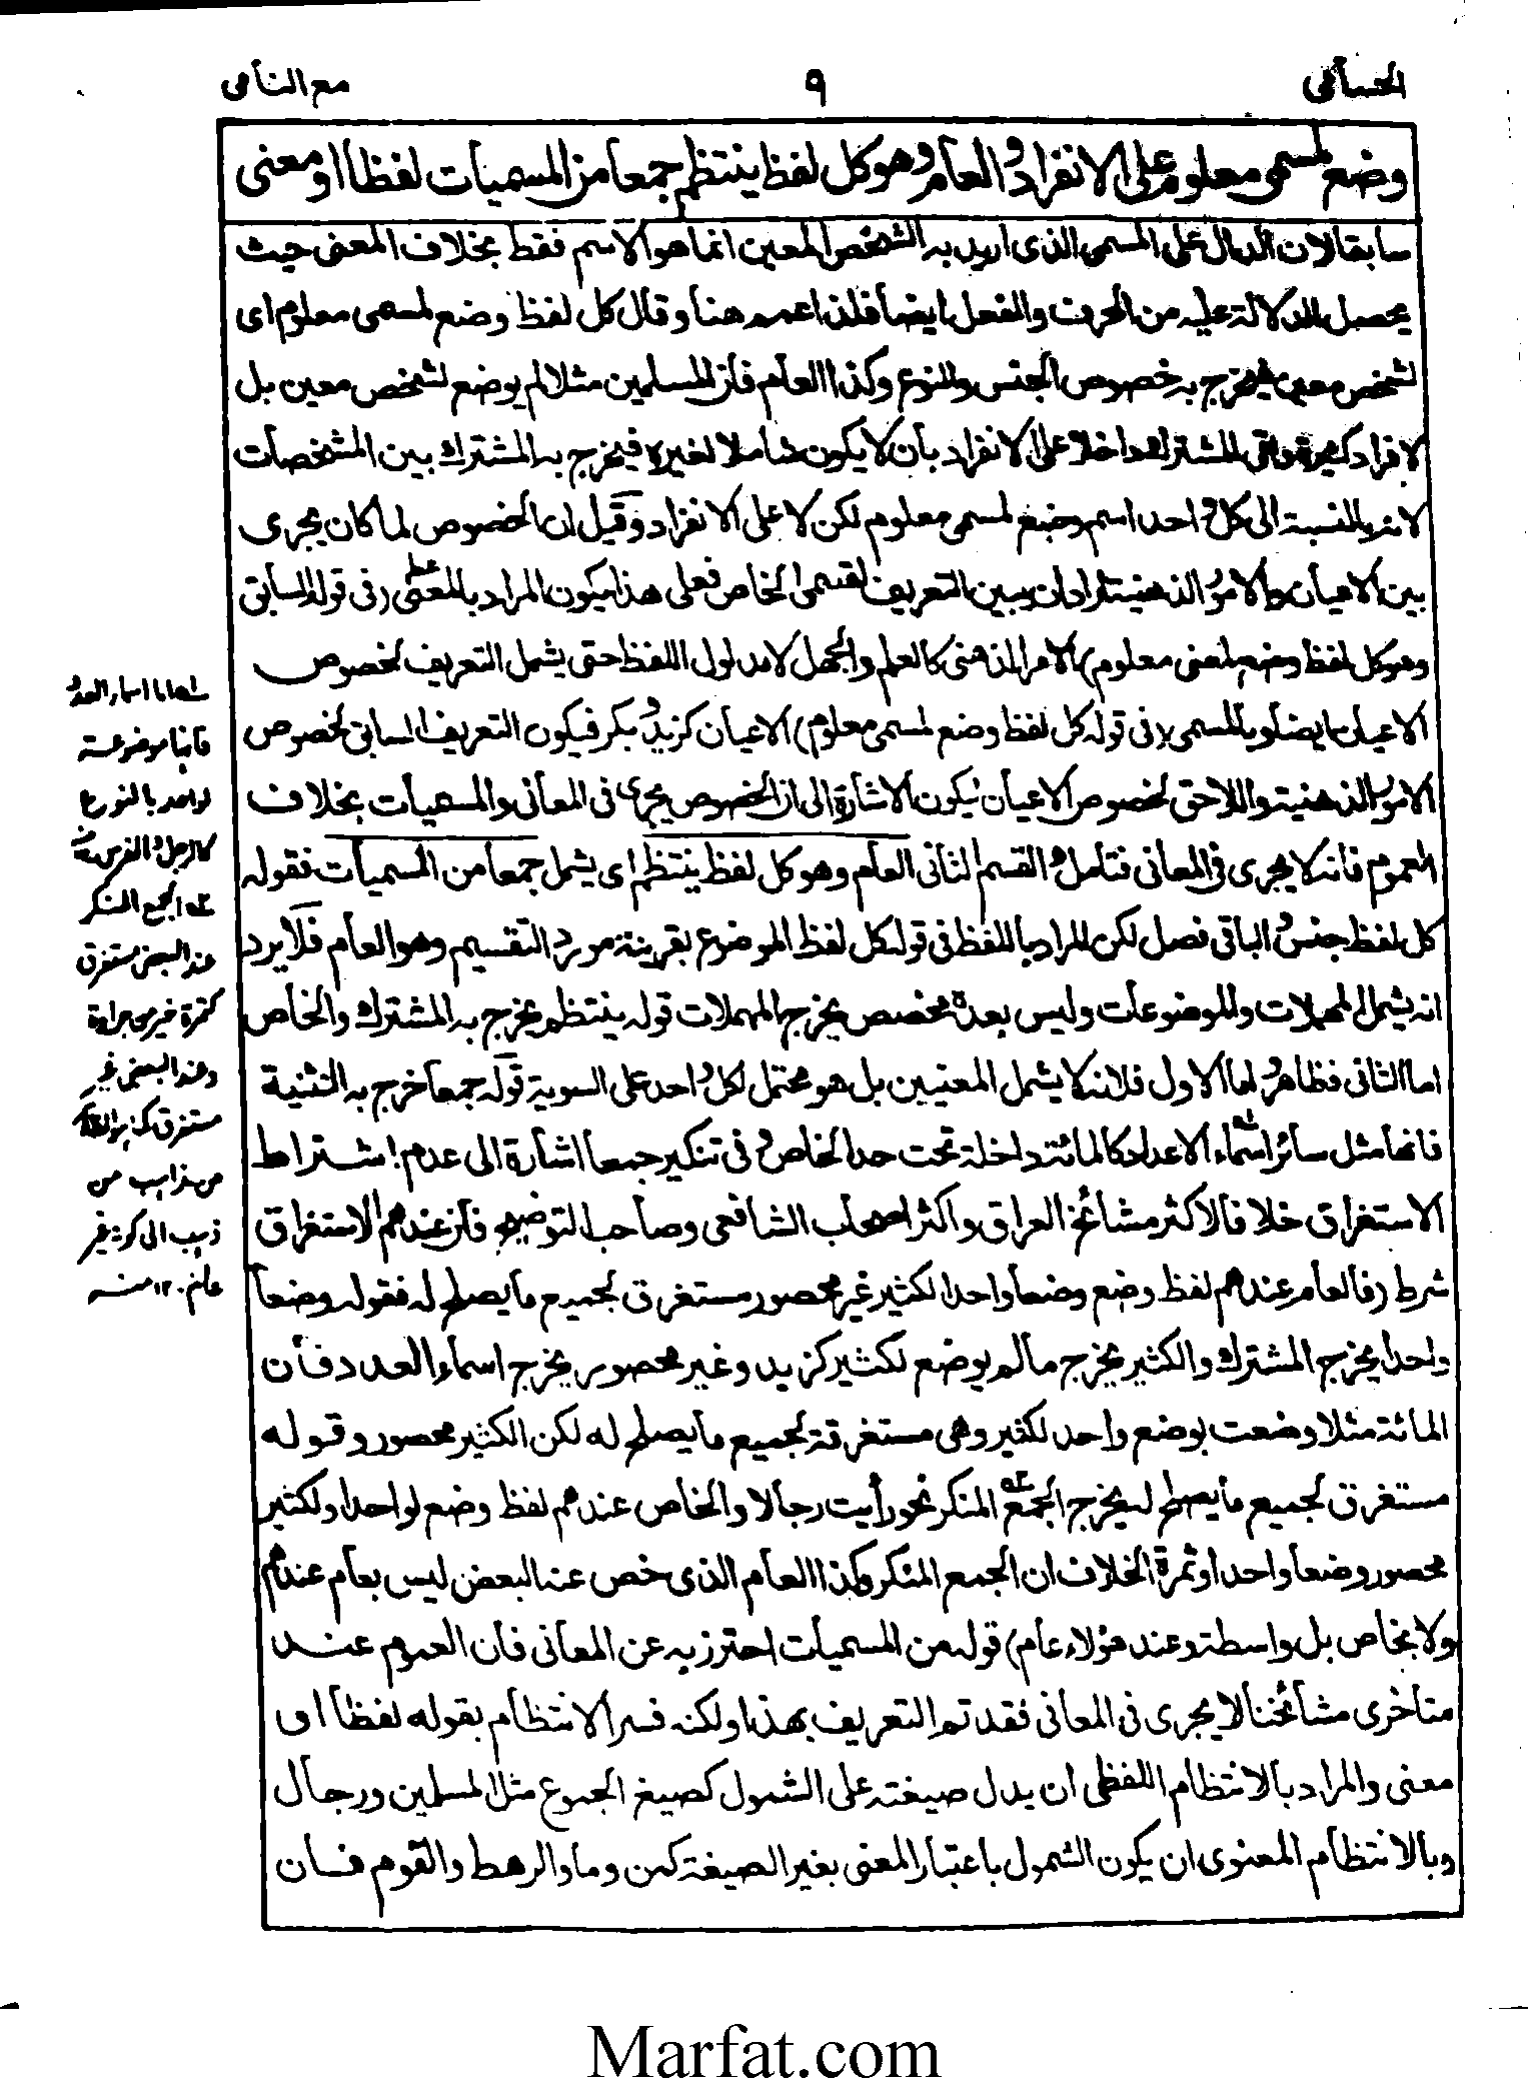 الحسامى
٩
مع النامى
وضع لمسمى معلوم على الانفراد والعام وهو كل لفظ ينتظم جمعا من المسميات لفظا او معنى
سابقا لان الدال على المسمى الذى اريد به الشخص المعين انما هو الاسم فقط بخلاف المعنى حيث
يحصل الدلالة عليه من الحرف والفعل ايضا فلذا عمم هنا وقال كل لفظ وضع لمسمى معلوم اى
لشخص معين فيخرج به خصوص الجنس والنوع وكذا العام فان المسلمين مثلا لم يوضع لشخص معين بل
لافراد كثيرة وبقى المشترك داخلا على الانفراد بان لا يكون شاملا لغيره فيخرج به المشترك بين المشخصات
لانه بالنسبة الى كل واحد اسم وضع لمسمى معلوم لكن لا على الانفراد وقيل ان الخصوص لما كان يجرى
بين الاعيان والامور الذهنية اراد ان يبين التعريف لقسمى الخاص فعلى هذا يكون المراد بالمعنى (فى قوله السابق
وهو كل لفظ وضع لمعنى معلوم) الامر الذهنى كالعلم والجهل لا مدلول اللفظ حتى يشمل التعريف لخصوص
الاعيان ايضا وبالمسمى (فى قوله كل لفظ وضع لمسمى معلوم) الاعيان كزيد وبكر فيكون التعريف السابق لخصوص
الامور الذهنية واللاحق لخصوص الاعيان ليكون الاشارة الى ان الخصوص يجرى فى المعانى والمسميات بخلاف
العموم فانه لا يجرى فى المعانى فتامل و القسم الثانى العام وهو كل لفظ ينتظم اى يشمل جمعا من المسميات فقوله
كل لفظ جنس و الباقى فصل لكن المراد باللفظ فى قوله كل لفظ الموضوع بقرينة مورد التقسيم وهو العام فلا يرد
انه يشمل المهملات والموضوعات وليس بعده مخصص يخرج المهملات قوله ينتظم يخرج به المشترك والخاص
اما الثانى فظاهر و اما الاول فلانه لا يشمل المعنيين بل هو محتمل لكل واحد على السوية قوله جمعا خرج به التثنية
فانها مثل سائر اسماء الاعداد كالمائة داخلة تحت حد الخاص و فى تنكير جمعا اشارة الى عدم اشتراط
الاستغراق خلافا لاكثر مشائخ العراق واكثر اصحاب الشافعى وصاحب التوضيح فان عندهم الاستغراق
شرط (فالعام عندهم لفظ وضع وضعا واحدا لكثير غير محصور مستغرق لجميع ما يصلح له فقوله وضعا
واحدا يخرج المشترك والكثير يخرج ما لم يوضع لكثير كزيد وغير محصور يخرج اسماء العدد فان
المائة مثلا وضعت بوضع واحد لكثير وهى مستغرقة لجميع ما يصلح له لكن الكثير محصور وقوله
مستغرق لجميع ما يصلح له يخرج الجمع المنكر نحو رأيت رجالا والخاص عندهم لفظ وضع لواحد او لكثير
محصور وضعا واحدا وثمرة الخلاف ان الجمع المنكر وكذا العام الذى خص عنه البعض ليس بعام عندهم
ولا بخاص بل واسطة وعند هؤلاء عام) قوله من المسميات احترز به عن المعانى فان العموم عند
متأخرى مشائخنا لا يجرى فى المعانى فقد تم التعريف بهذا ولكنه فسر الانتظام بقوله لفظا او
معنى والمراد بالانتظام اللفظى ان يدل صيغته على الشمول كصيغ الجموع مثل المسلمين ورجال
وبالانتظام المعنوى ان يكون الشمول باعتبار المعنى بغير الصيغة كمن وما والرهط والقوم فان
اسماء العدد
فانها موضوعة
لواحد بالنوع
كالرجل و الفرس
الجمع المنكر
عند البعض مستغرق
كتمرة خير من جرادة
وعند البعض غير
مستغرق
من مذاهب من
ذهب الى كونه غير
عام ١٢٠ منه
Marfat.com